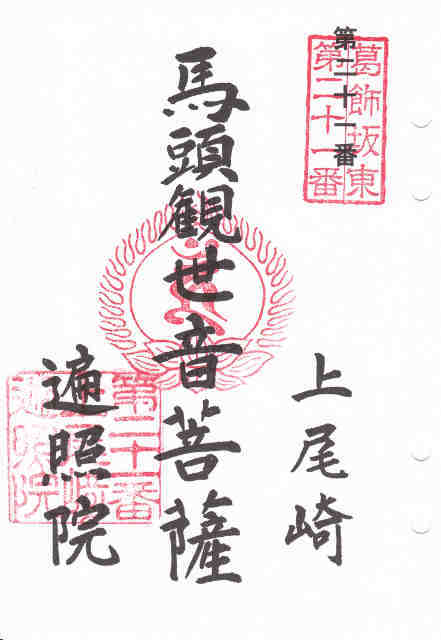 葛飾坂東
第二十一番
第二十一番
上尾崎
馬頭観世音菩薩
第二十一番
遍照院